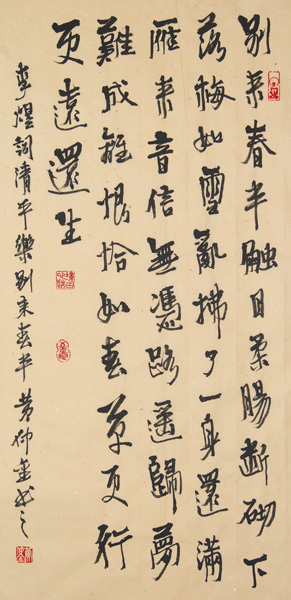 别来春半触目柔腸断砌下
落梅如雪亂拂了一身還滿
雁来音信無憑路遥歸夢
難成離恨恰如春草更行
更遠還生
李煜詞清平樂别来春半黄仲